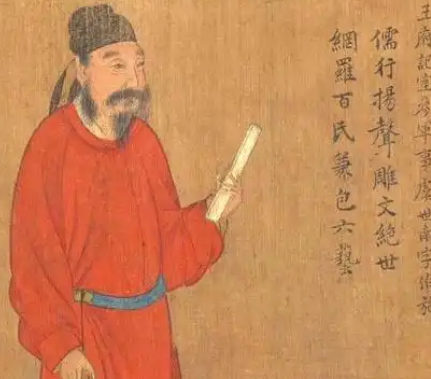 王府記室參軍事虞世南字伯施
儒行揚聲雕文絕世
網羅百民兼包六藝